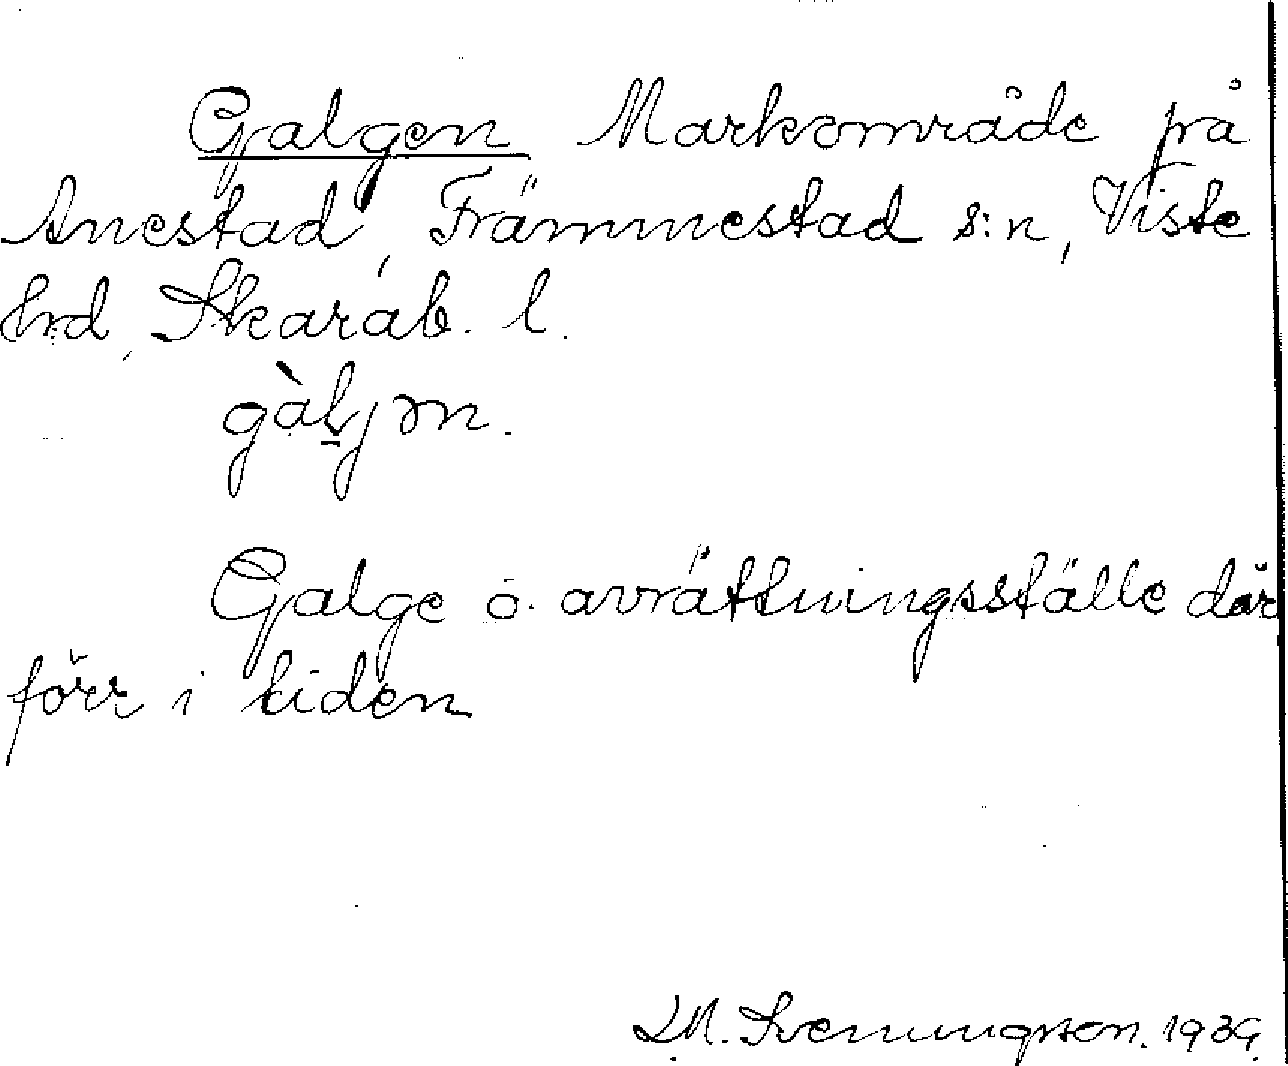 Galgen Markområde på
Anestad, Främmestad s:n, Viste
hrd, Skarab. l.
gàljən.
Galge o. avrättningsställe där
förr i tiden
Svenungsson. 1939.